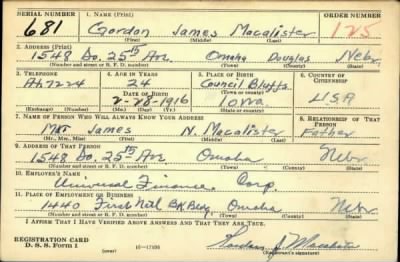 SERIAL NUMBER
1. NAME (Print)
ORDER NUMBER
681
Gordon James Macalister
125
(First) (Middle) (Last)
2. ADDRESS (Print)
1548 So. 25th Ave. Omaha Douglas Nebr.
(Number and street or R. F. D. number) (Town) (County) (State)
3. TELEPHONE
4. AGE IN YEARS
5. PLACE OF BIRTH
6. COUNTRY OF CITIZENSHIP
At. 7224
24
Council Bluffs
DATE OF BIRTH
(Town or county)
2-28-1916
Iowa
USA
(Exchange) (Number)
(Mo.) (Day) (Yr.)
(State or country)
7. NAME OF PERSON WHO WILL ALWAYS KNOW YOUR ADDRESS
8. RELATIONSHIP OF THAT PERSON
Mr. James N. Macalister
Father
(Mr., Mrs., Miss) (First) (Middle) (Last)
9. ADDRESS OF THAT PERSON
1548 So. 25th Ave Omaha Nebr.
(Number and street or R. F. D. number) (Town) (County) (State)
10. EMPLOYER'S NAME
Universal Finance Corp.
11. PLACE OF EMPLOYMENT OR BUSINESS
1440 First Natl Bk Bldg, Omaha Nebr
(Number and street or R. F. D. number) (Town) (County) (State)
I AFFIRM THAT I HAVE VERIFIED ABOVE ANSWERS AND THAT THEY ARE TRUE.
REGISTRATION CARD
D. S. S. Form 1
(over)
16-17105
Gordon J. Macalister